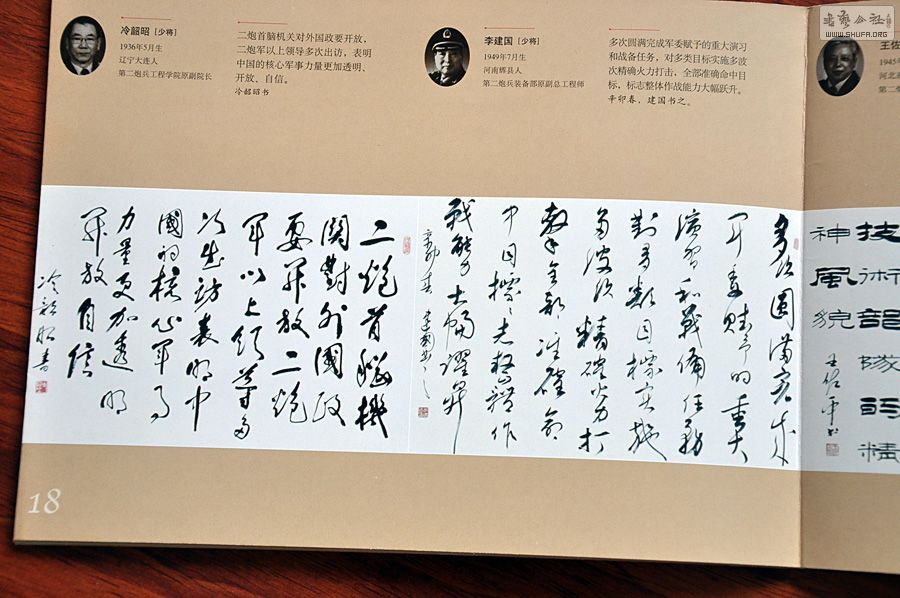 冷韶昭 [少将]
1936年5月生
辽宁大连人
第二炮兵工程学院原副院长
二炮首脑机关对外国政要开放,
二炮军以上领导多次出访, 表明
中国的核心军事力量更加透明、
开放、自信。
冷韶昭书
李建国 [少将]
1949年7月生
河南辉县人
第二炮兵装备部原副总工程师
多次圆满完成军委赋予的重大演习
和战备任务, 对多类目标实施多波
次精确火力打击, 全部准确命中目
标, 标志整体作战能力大幅跃升。
辛卯春、建国书之。
WWW.SHUFA.ORG
王佐
1945
河北
第二炮
多次圆满完成
军委赋予的重大
演习和战备任务
对多类目标实施
多波次精确火力打
击全部准确命
中目标标志整体作
战能力大幅跃升
辛卯春 建国书之
二炮首脑机
关对外国政
要开放二炮
军以上领导多
次出访表明中
国的核心军事
力量更加透明
开放自信
冷韶昭书
技术部队的精
神风貌
王佐平书
18